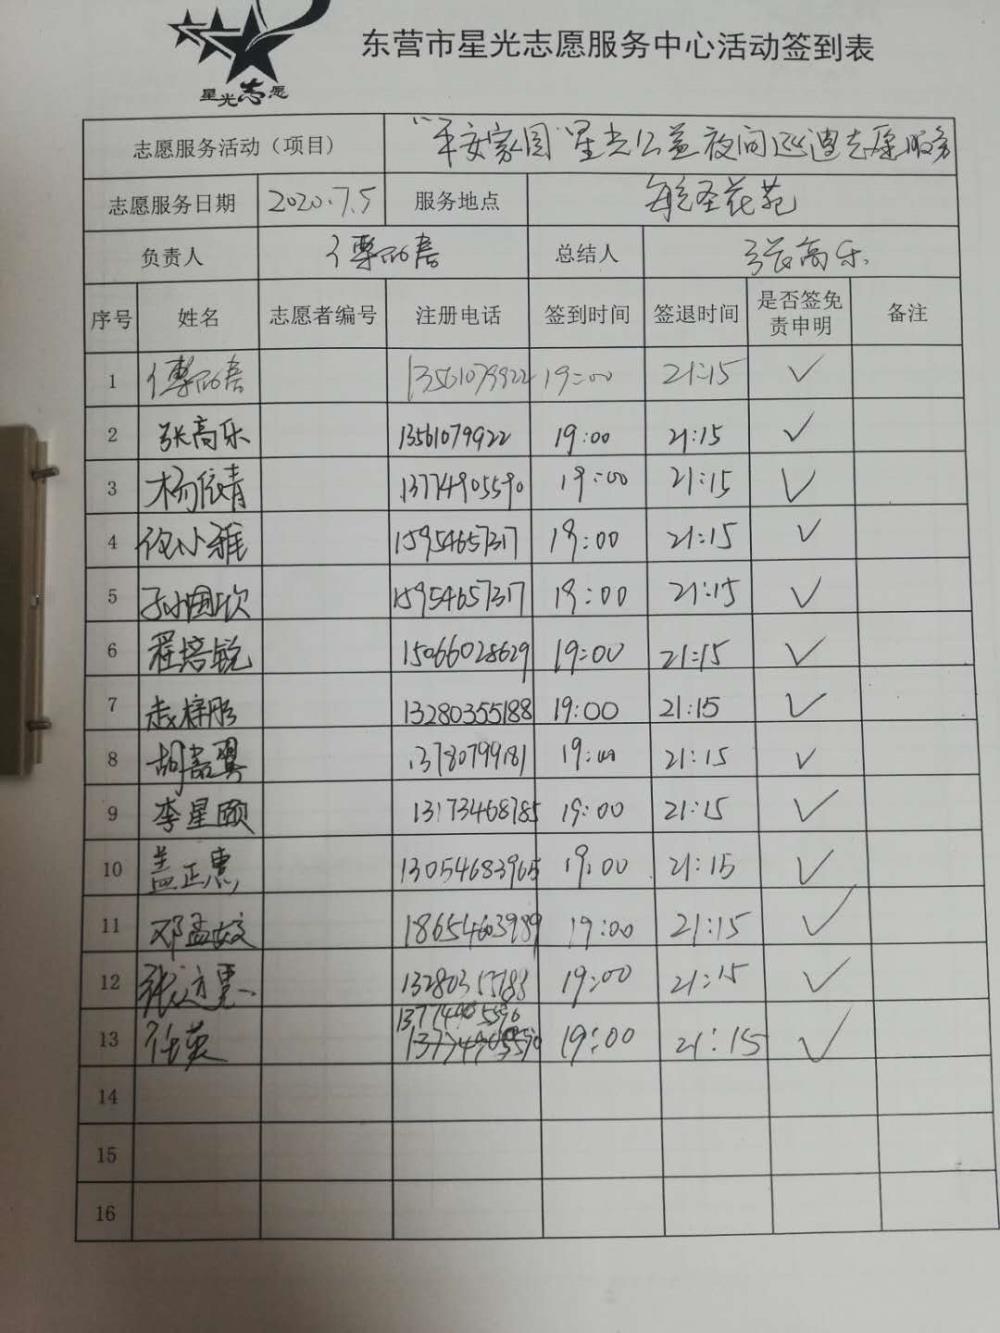 东营市星光志愿服务中心活动签到表
星光志愿
志愿服务活动（项目） "平安家园"星光公益夜间巡逻志愿服务
志愿服务日期 2020.7.5 服务地点 圣花苑
负责人 傅 总结人 张高乐
序号 姓名 志愿者编号 注册电话 签到时间 签退时间 是否签免责申明 备注
1 傅 13561079922 19:00 21:15 ✓
2 张高乐 13561079922 19:00 21:15 ✓
3 杨依青 13774905590 19:00 21:15 ✓
4 徐小雅 15954657317 19:00 21:15 ✓
5 孙国欣 15954657317 19:00 21:15 ✓
6 程培锐 15066028629 19:00 21:15 ✓
7 赵梓彤 13280355188 19:00 21:15 ✓
8 胡嘉翼 13780799181 19:00 21:15 ✓
9 李星颐 13173468785 19:00 21:15 ✓
10 盖正惠 13054683965 19:00 21:15 ✓
11 邓孟姣 18654603989 19:00 21:15 ✓
12 张 19:00 21:15 ✓
13 任英 19:00 21:15 ✓
14
15
16